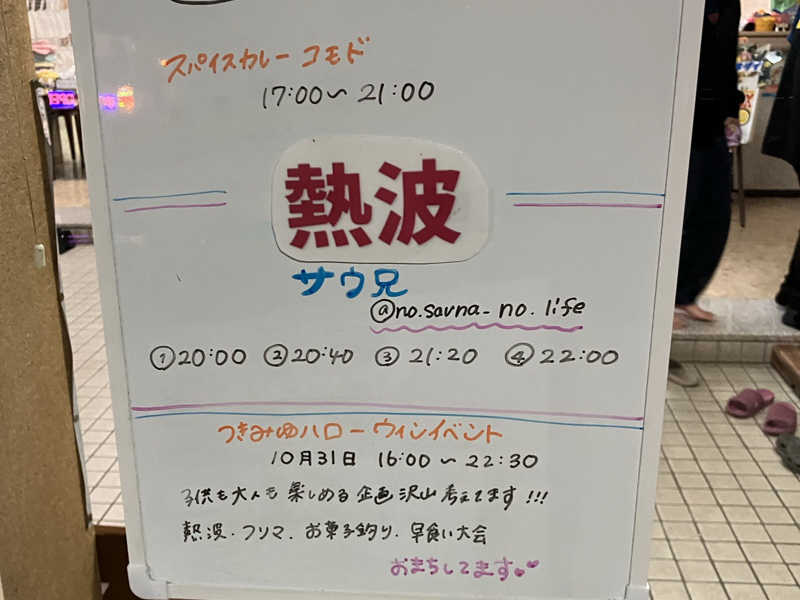 スパイスカレー コモド
17:00〜21:00
熱波
サウ兄
@no.sauna_no.life
①20:00 ②20:40 ③21:20 ④22:00
つきみゆハローウィンイベント
10月31日 16:00〜22:30
子供も大人も楽しめる企画沢山考えてます!!!
熱波・フリマ、お菓子釣り、早食い大会
おまちしてます♥♥